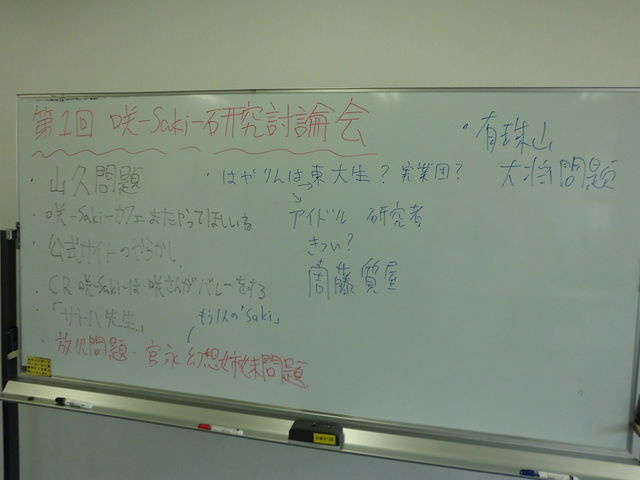 第1回 咲-Saki-研究討論会
・山久問題
・咲-Saki-カフェまたやってほしいな
・公式サイトのやらかし
・CR咲-Saki-は咲さんがバレーをする
・「サトハ先生」
もう1人の「Saki」
・放火問題・宮永幻想姉妹問題
・はやりんは東大生？実業団？
アイドル 研究者
きつい？
周藤質屋
・有珠山
大将問題